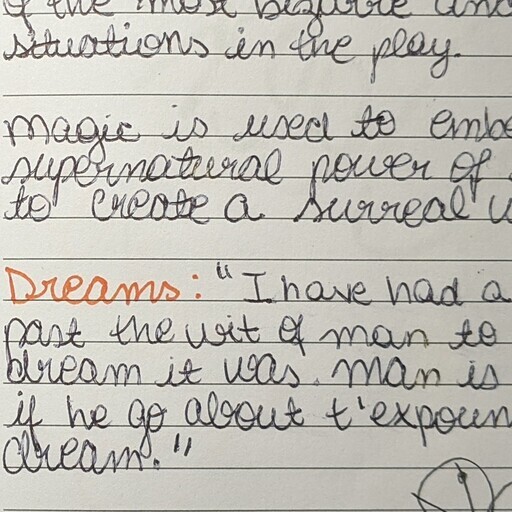 of the most bizarre and
situations in the play.
magic is used to embo
supernatural power of
to create a surreal w
Dreams: "I have had a
past the wit of man to
dream it was. man is
if he go about t'expoun
dream."